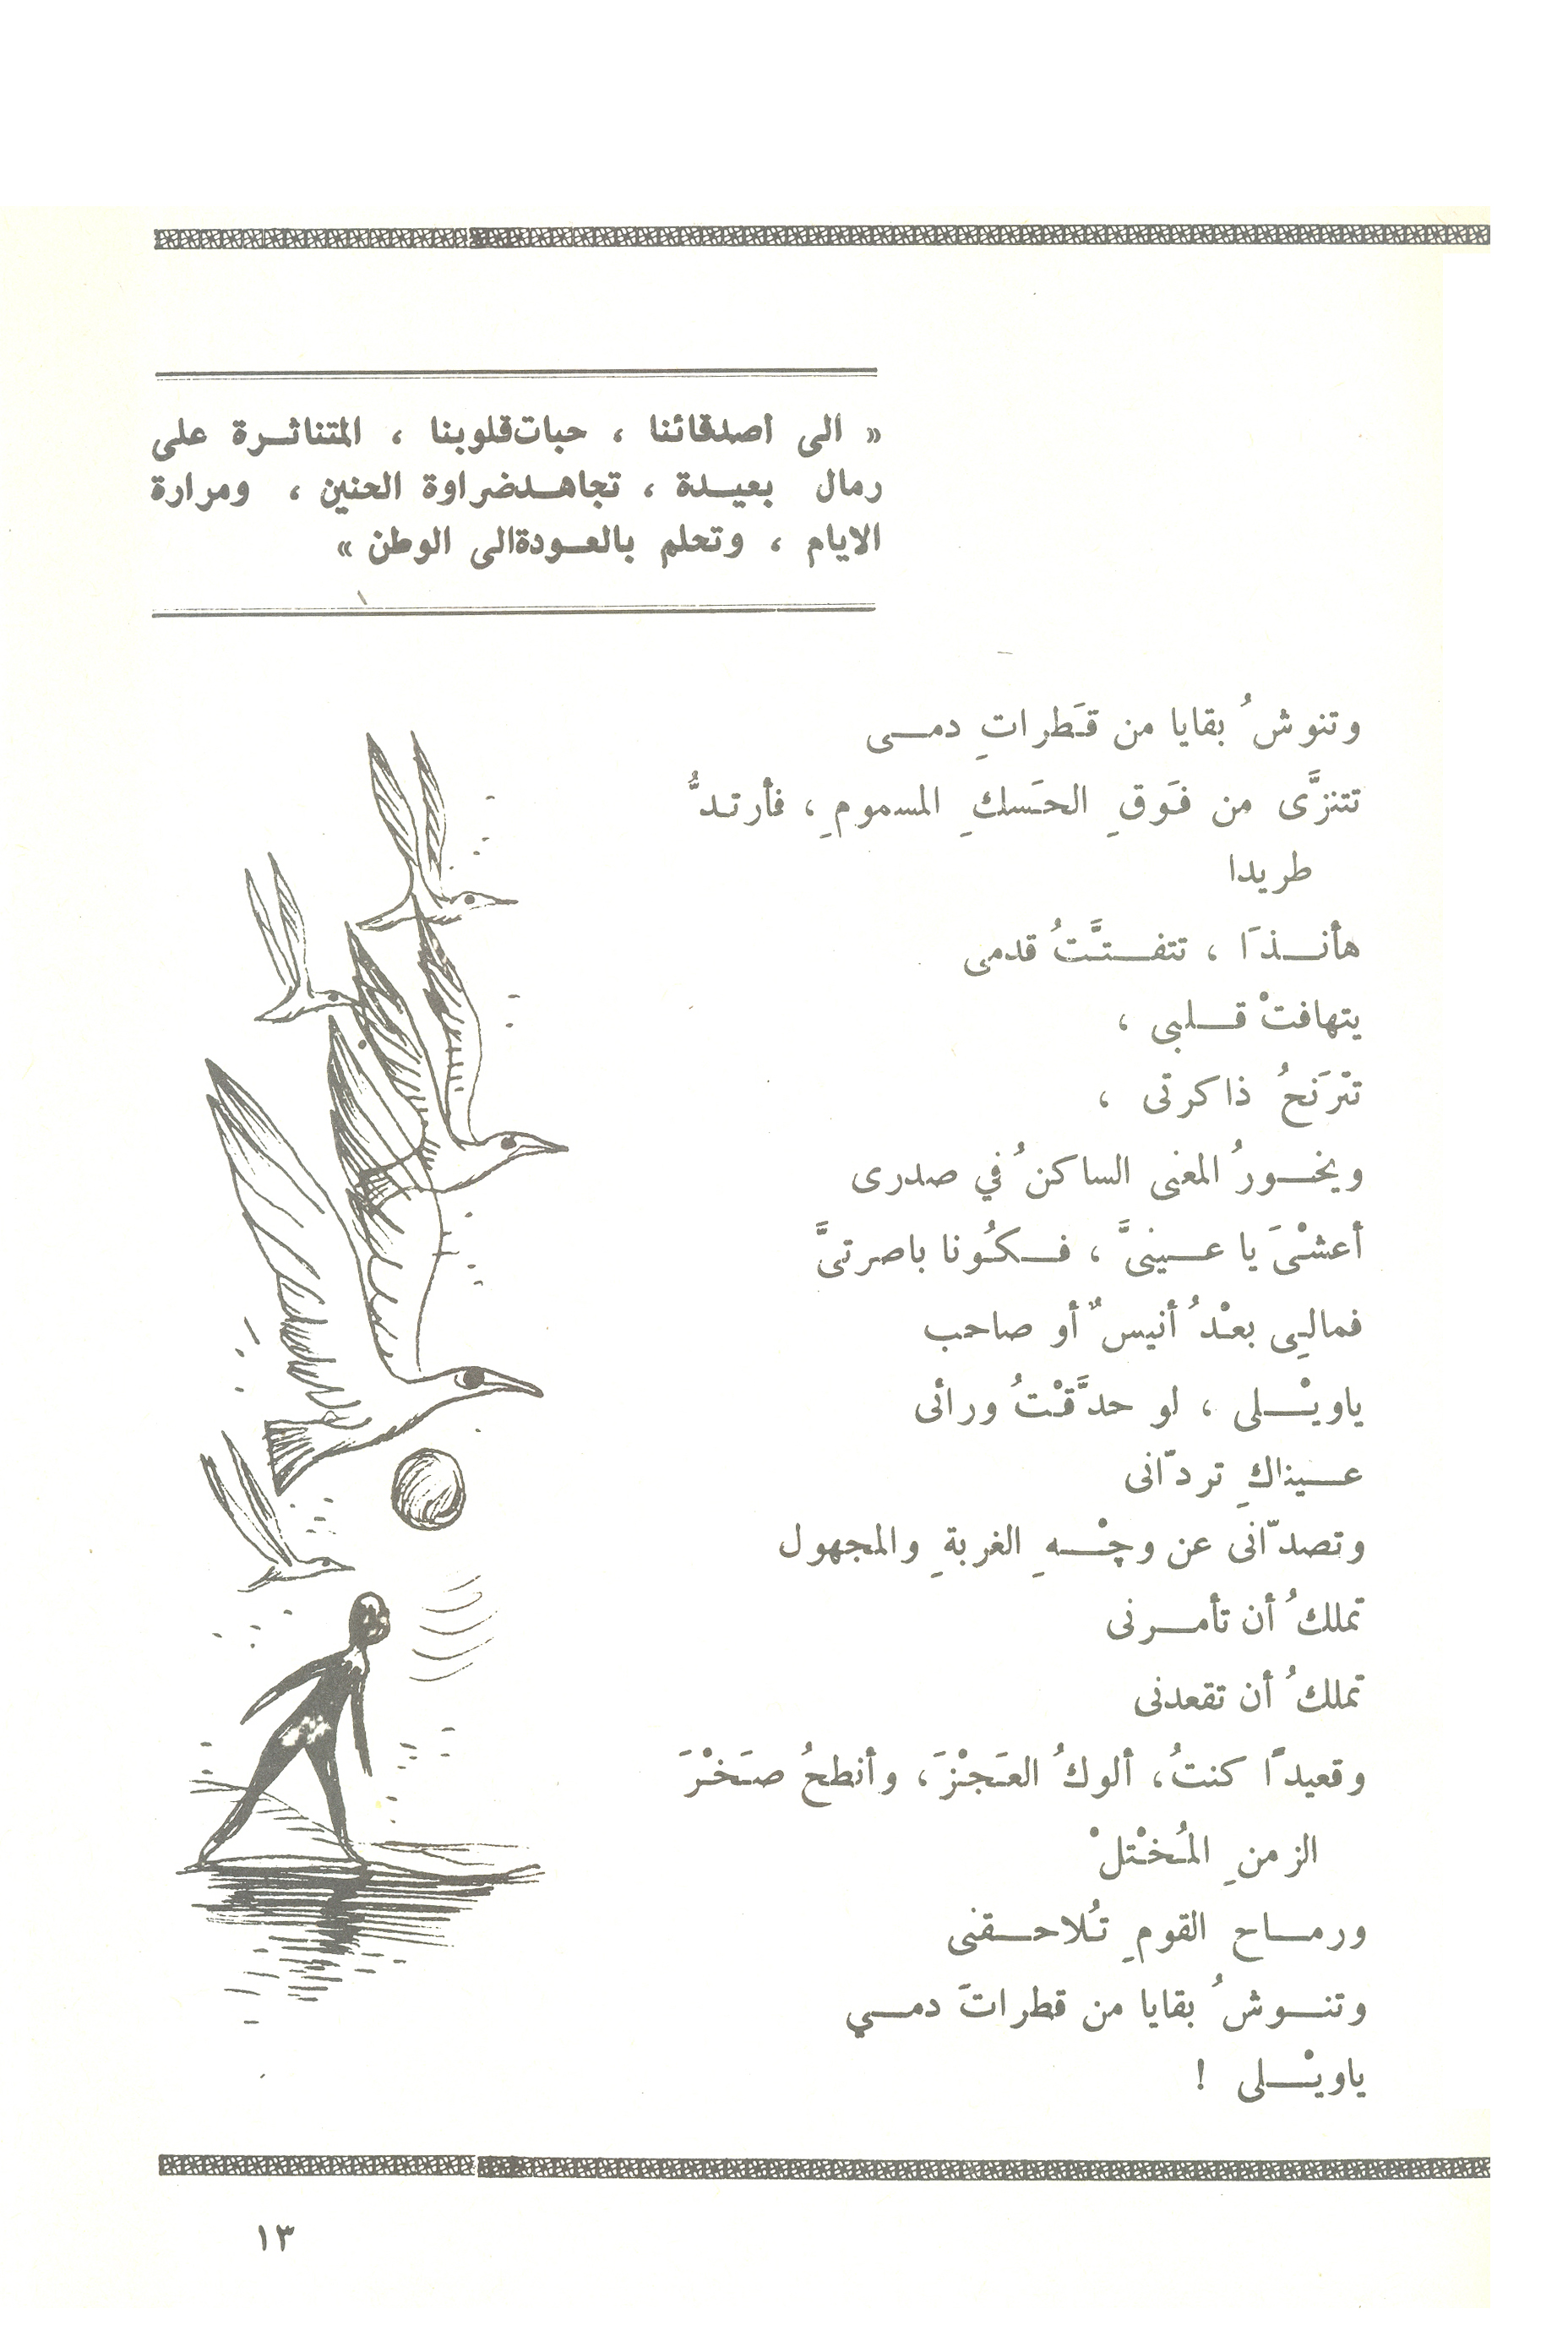 « الى أصدقائنا ، حبات قلوبنا ، المتناثرة على
رمال بعيدة ، تجاهد ضراوة الحنين ، ومرارة
الايام ، وتحلم بالعودة الى الوطن »
وتنوشُ بقايا من قَطراتِ دمى
تتنزَّى من فَوقِ الحَسكِ المسمومِ ، فأرتدُّ
طريدا
هأنذَا ، تتفتَّتُ قدمى
يتهافتْ قلبى ،
تترَنحُ ذاكرتى ،
ويخورُ المعنى الساكنُ في صدرى
أعشْىَ يا عينىَّ ، فكُونا باصرتىَّ
فمالِى بعْدُ أنيسٌ أو صاحب
ياويْلى ، لو حدَّقْتُ ورائى
عيناكِ تردّانى
وتصدّانى عن وجْهِ الغربةِ والمجهول
تملكُ أن تأمرنى
تملكُ أن تقعدنى
وقعيدًا كنتُ، ألوكُ العَجْزَ، وأنطحُ صَخْرَ
الزمنِ المُخْتلْ
ورماح القومِ تُلاحقنى
وتنوشُ بقايا من قطراتَ دمي
ياويْلى !
١٣